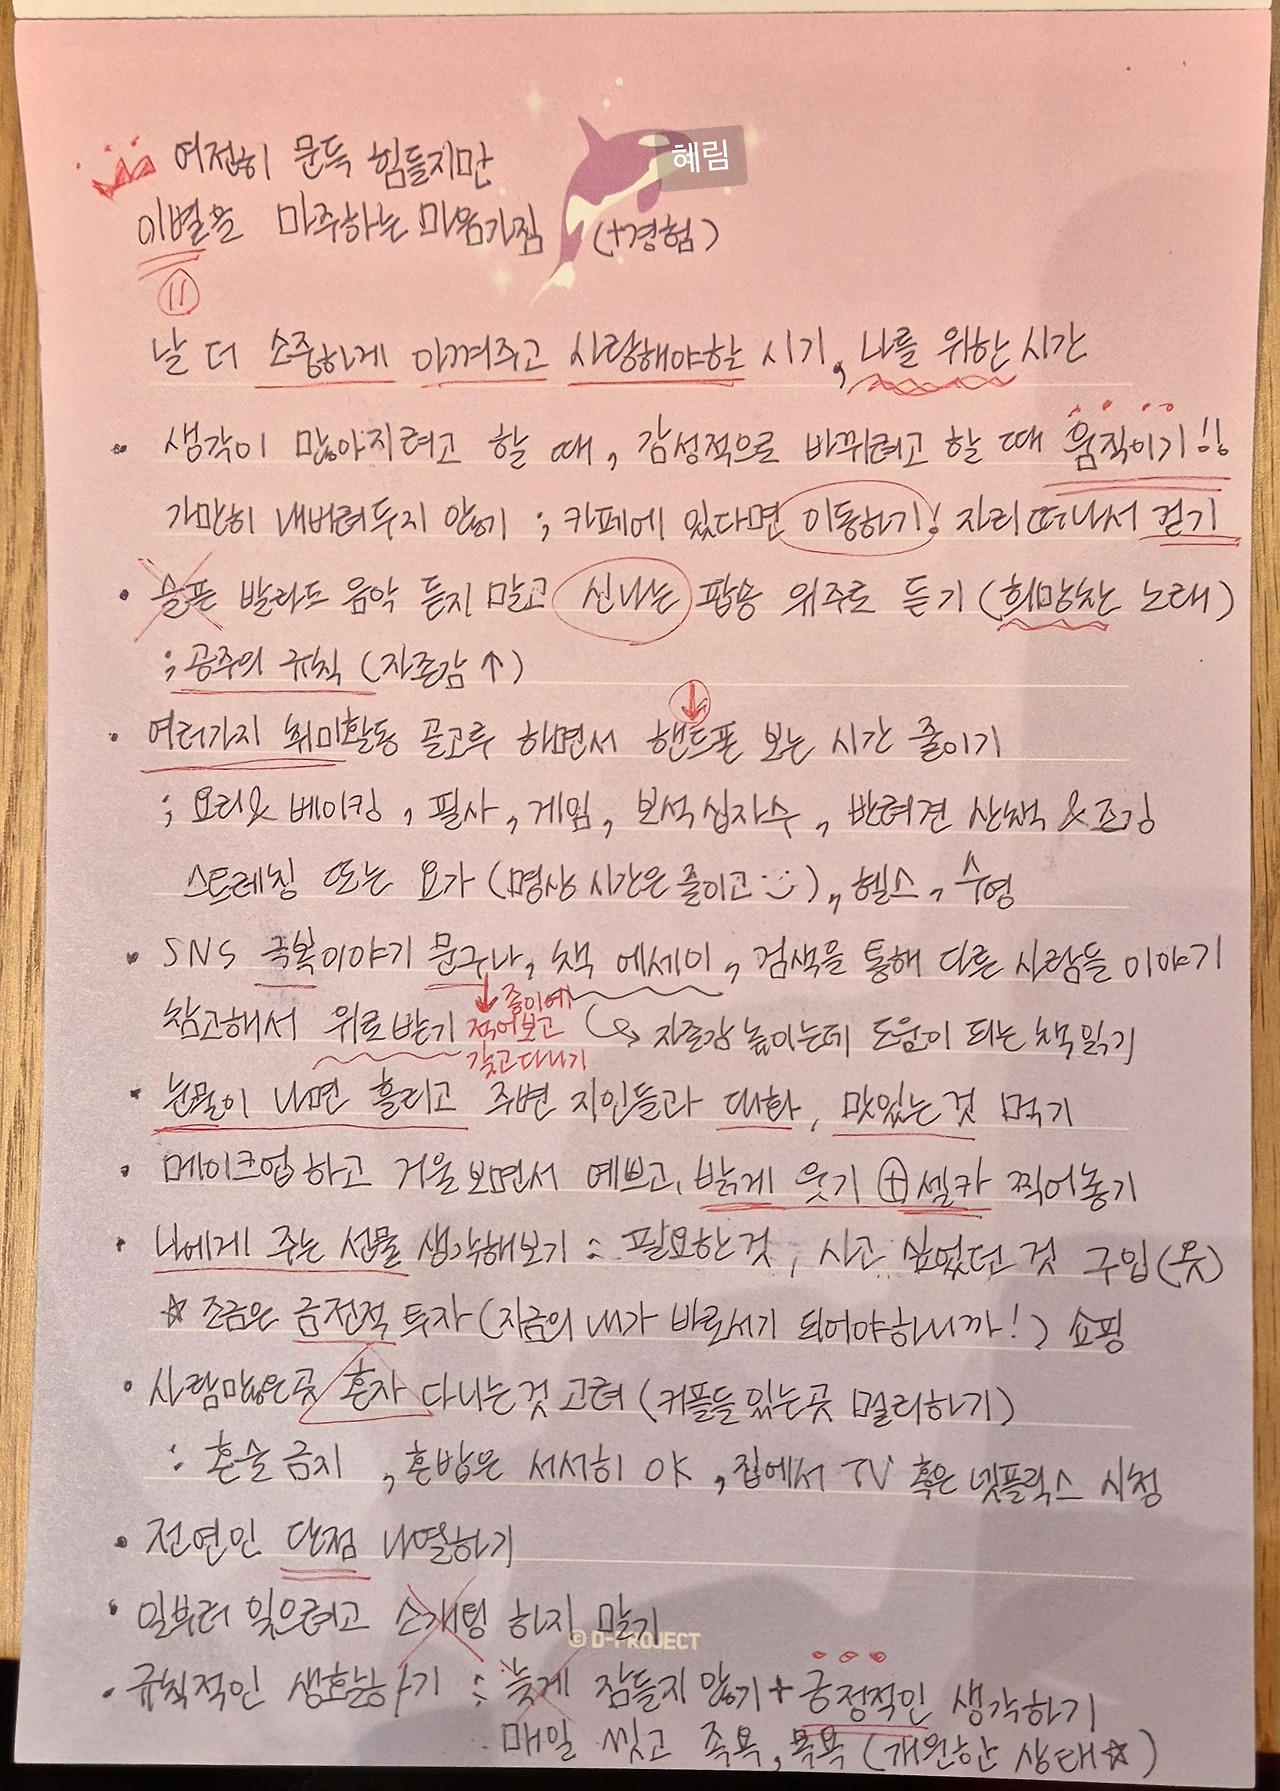 혜림
여전히 문득 힘들지만
이별을 마주하는 마음가짐 (+경험)
날 더 소중하게 아껴주고 사랑해야할 시기, 나를 위한 시간
• 생각이 많아지려고 할 때, 감성적으로 바뀌려고 할 때 움직이기!!
가만히 내버려두지 않기 ; 카페에 있다면 이동하기! 자리 떠나서 걷기
• 슬픈 발라드 음악 듣지 말고 신나는 팝송 위주로 듣기 (희망찬 노래)
; 공주의 규칙 (자존감 ↑)
• 여러가지 취미활동 골고루 하면서 핸드폰 보는 시간 줄이기
; 요리 & 베이킹, 필사, 게임, 보석십자수, 반려견 산책 & 조깅
스트레칭 또는 요가 (명상 시간은 줄이고 :)), 헬스, 수영
• SNS 극복이야기 문구나, 책 에세이, 검색을 통해 다른 사람들 이야기
참고해서 위로받기 종이에 적어보고 갖고다니기 자존감 높이는데 도움이 되는 책 읽기
• 눈물이 나면 흘리고 주변 지인들과 대화, 맛있는 것 먹기
• 메이크업 하고 거울 보면서 예쁘고, 밝게 웃기 ⊕ 셀카 찍어놓기
• 나에게 주는 선물 생각해보기 : 필요한 것, 사고 싶었던 것 구입 (옷)
☆ 조금은 금전적 투자 (지금의 내가 바로서기 되어야하니까!) 쇼핑
• 사람많은곳 혼자 다니는 것 고려 (커플들 있는곳 멀리하기)
: 혼술 금지, 혼밥은 서서히 OK, 집에서 TV 혹은 넷플릭스 시청
• 전연인 단점 나열하기
• 일부러 잊으려고 소개팅 하지 말기
© D-PROJECT
• 규칙적인 생활하기 : 늦게 잠들지 않기 + 긍정적인 생각하기
매일 씻고 족욕, 목욕 (개운한 상태☆)